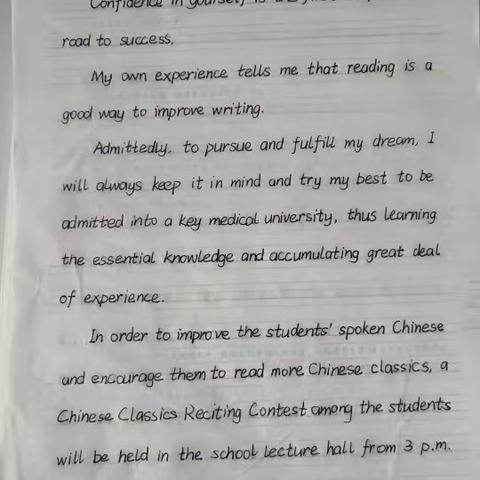 Confidence in yourself is a
road to success.
My own experience tells me that reading is a
good way to improve writing.
Admittedly, to pursue and fulfill my dream, I
will always keep it in mind and try my best to be
admitted into a key medical university, thus learning
the essential knowledge and accumulating great deal
of experience.
In order to improve the students' spoken Chinese
and encourage them to read more Chinese classics, a
Chinese Classics Reciting Contest among the students
will be held in the school lecture hall from 3 p.m.